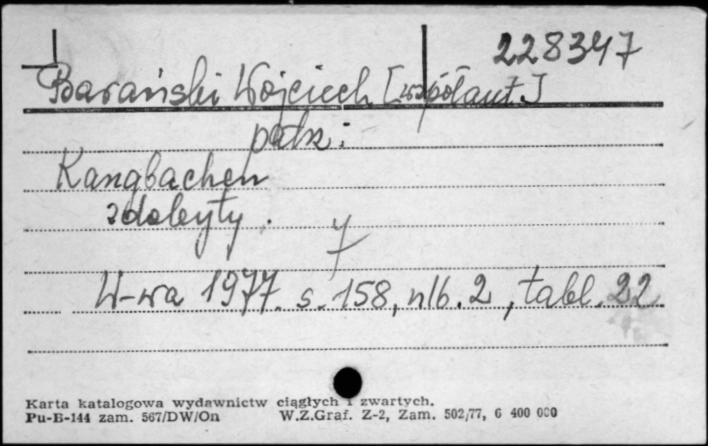 228347
Barański Wojciech [współaut.]
patrz:
Kangbachen
zdobyty.
W-wa 1977. s. 158, nlb. 2, tabl. 22
Karta katalogowa wydawnictw ciągłych i zwartych.
Pu-B-144 zam. 567/DW/On W.Z.Graf. Z-2, Zam. 502/77, 6 400 000